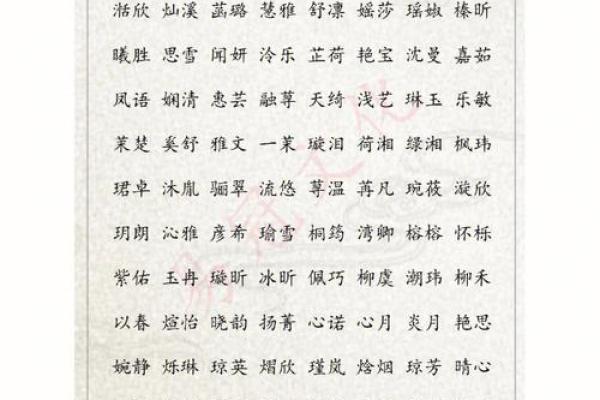 湉欣 灿溪 菡璐 慧雅 舒凛 媱莎 瑶娰 榛昕
曦胜 思雪 闻妍 泠乐 芷荷 艳宝 沈曼 嘉茹
凤语 娴清 惠芸 融荨 天绮 浅艺 琳玉 乐敏
茉楚 奚舒 雅文 一茉 璇泪 荷湘 绿湘 枫玮
珺卓 沐胤 骊翠 流悠 荨温 苒凡 琬莜 漩欣
玥朗 沁雅 彦希 瑜雪 桐筠 湾卿 榕榕 怀栎
紫佑 玉冉 璇昕 冰昕 佩巧 柳虞 潮玮 柳禾
以春 煊怡 晓韵 扬菁 心诺 心月 炎月 艳思
婉静 烁琳 琼英 熠欣 瑾岚 焓烟 琼芳 晴心
易冠文化